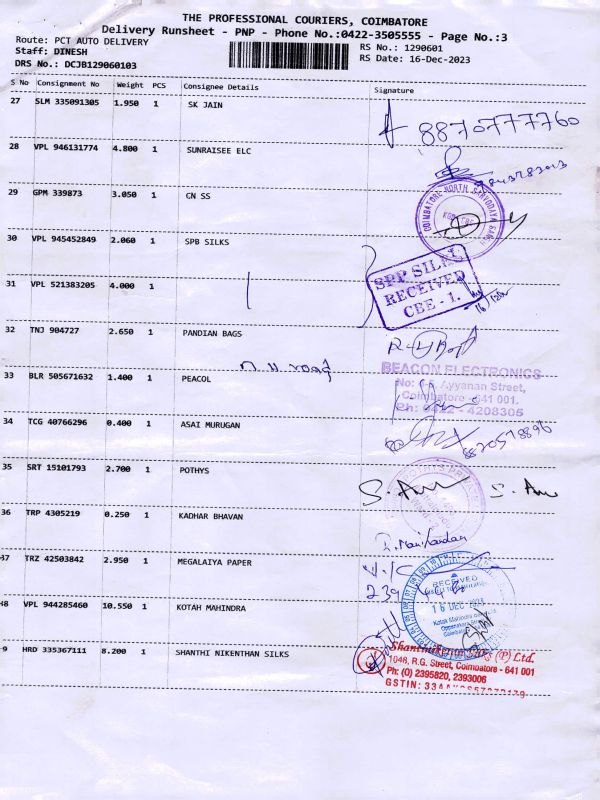 THE PROFESSIONAL COURIERS, COIMBATORE
Delivery Runsheet - PNP - Phone No.:0422-3505555 - Page No.:3
Route: PCT AUTO DELIVERY
RS No.: 1290601
Staff: DINESH
RS Date: 16-Dec-2023
DRS No.: DCJB129060103
S No Consignment No Weight PCS Consignee Details Signature
27 SLM 335091305 1.950 1 SK JAIN
8870777760
28 VPL 946131774 4.800 1 SUNRAISEE ELC
29 GPM 339873 3.050 1 CN SS
COIMBATORE NORTH SARVODAYA
30 VPL 945452849 2.060 1 SPB SILKS
SPP SILKS
RECEIVED
CBE - 1.
31 VPL 521383205 4.000 1
32 TNJ 904727 2.650 1 PANDIAN BAGS
BEACON ELECTRONICS
33 BLR 505671632 1.400 1 PEACOL
Ayyanan Street,
Coimbatore - 641 001.
Ph: 0422 - 4208305
34 TCG 40766296 0.400 1 ASAI MURUGAN
8870578896
35 SRT 15101793 2.700 1 POTHYS
36 TRP 4305219 0.250 1 KADHAR BHAVAN
37 TRZ 42503842 2.950 1 MEGALAIYA PAPER
RECEIVED
16 DEC 2023
38 VPL 944285460 10.550 1 KOTAH MAHINDRA
9 HRD 335367111 8.200 1 SHANTHI NIKENTHAN SILKS
(P) Ltd.
1048, R.G. Street, Coimbatore - 641 001
Ph: (O) 2395820, 2393006
GSTIN: